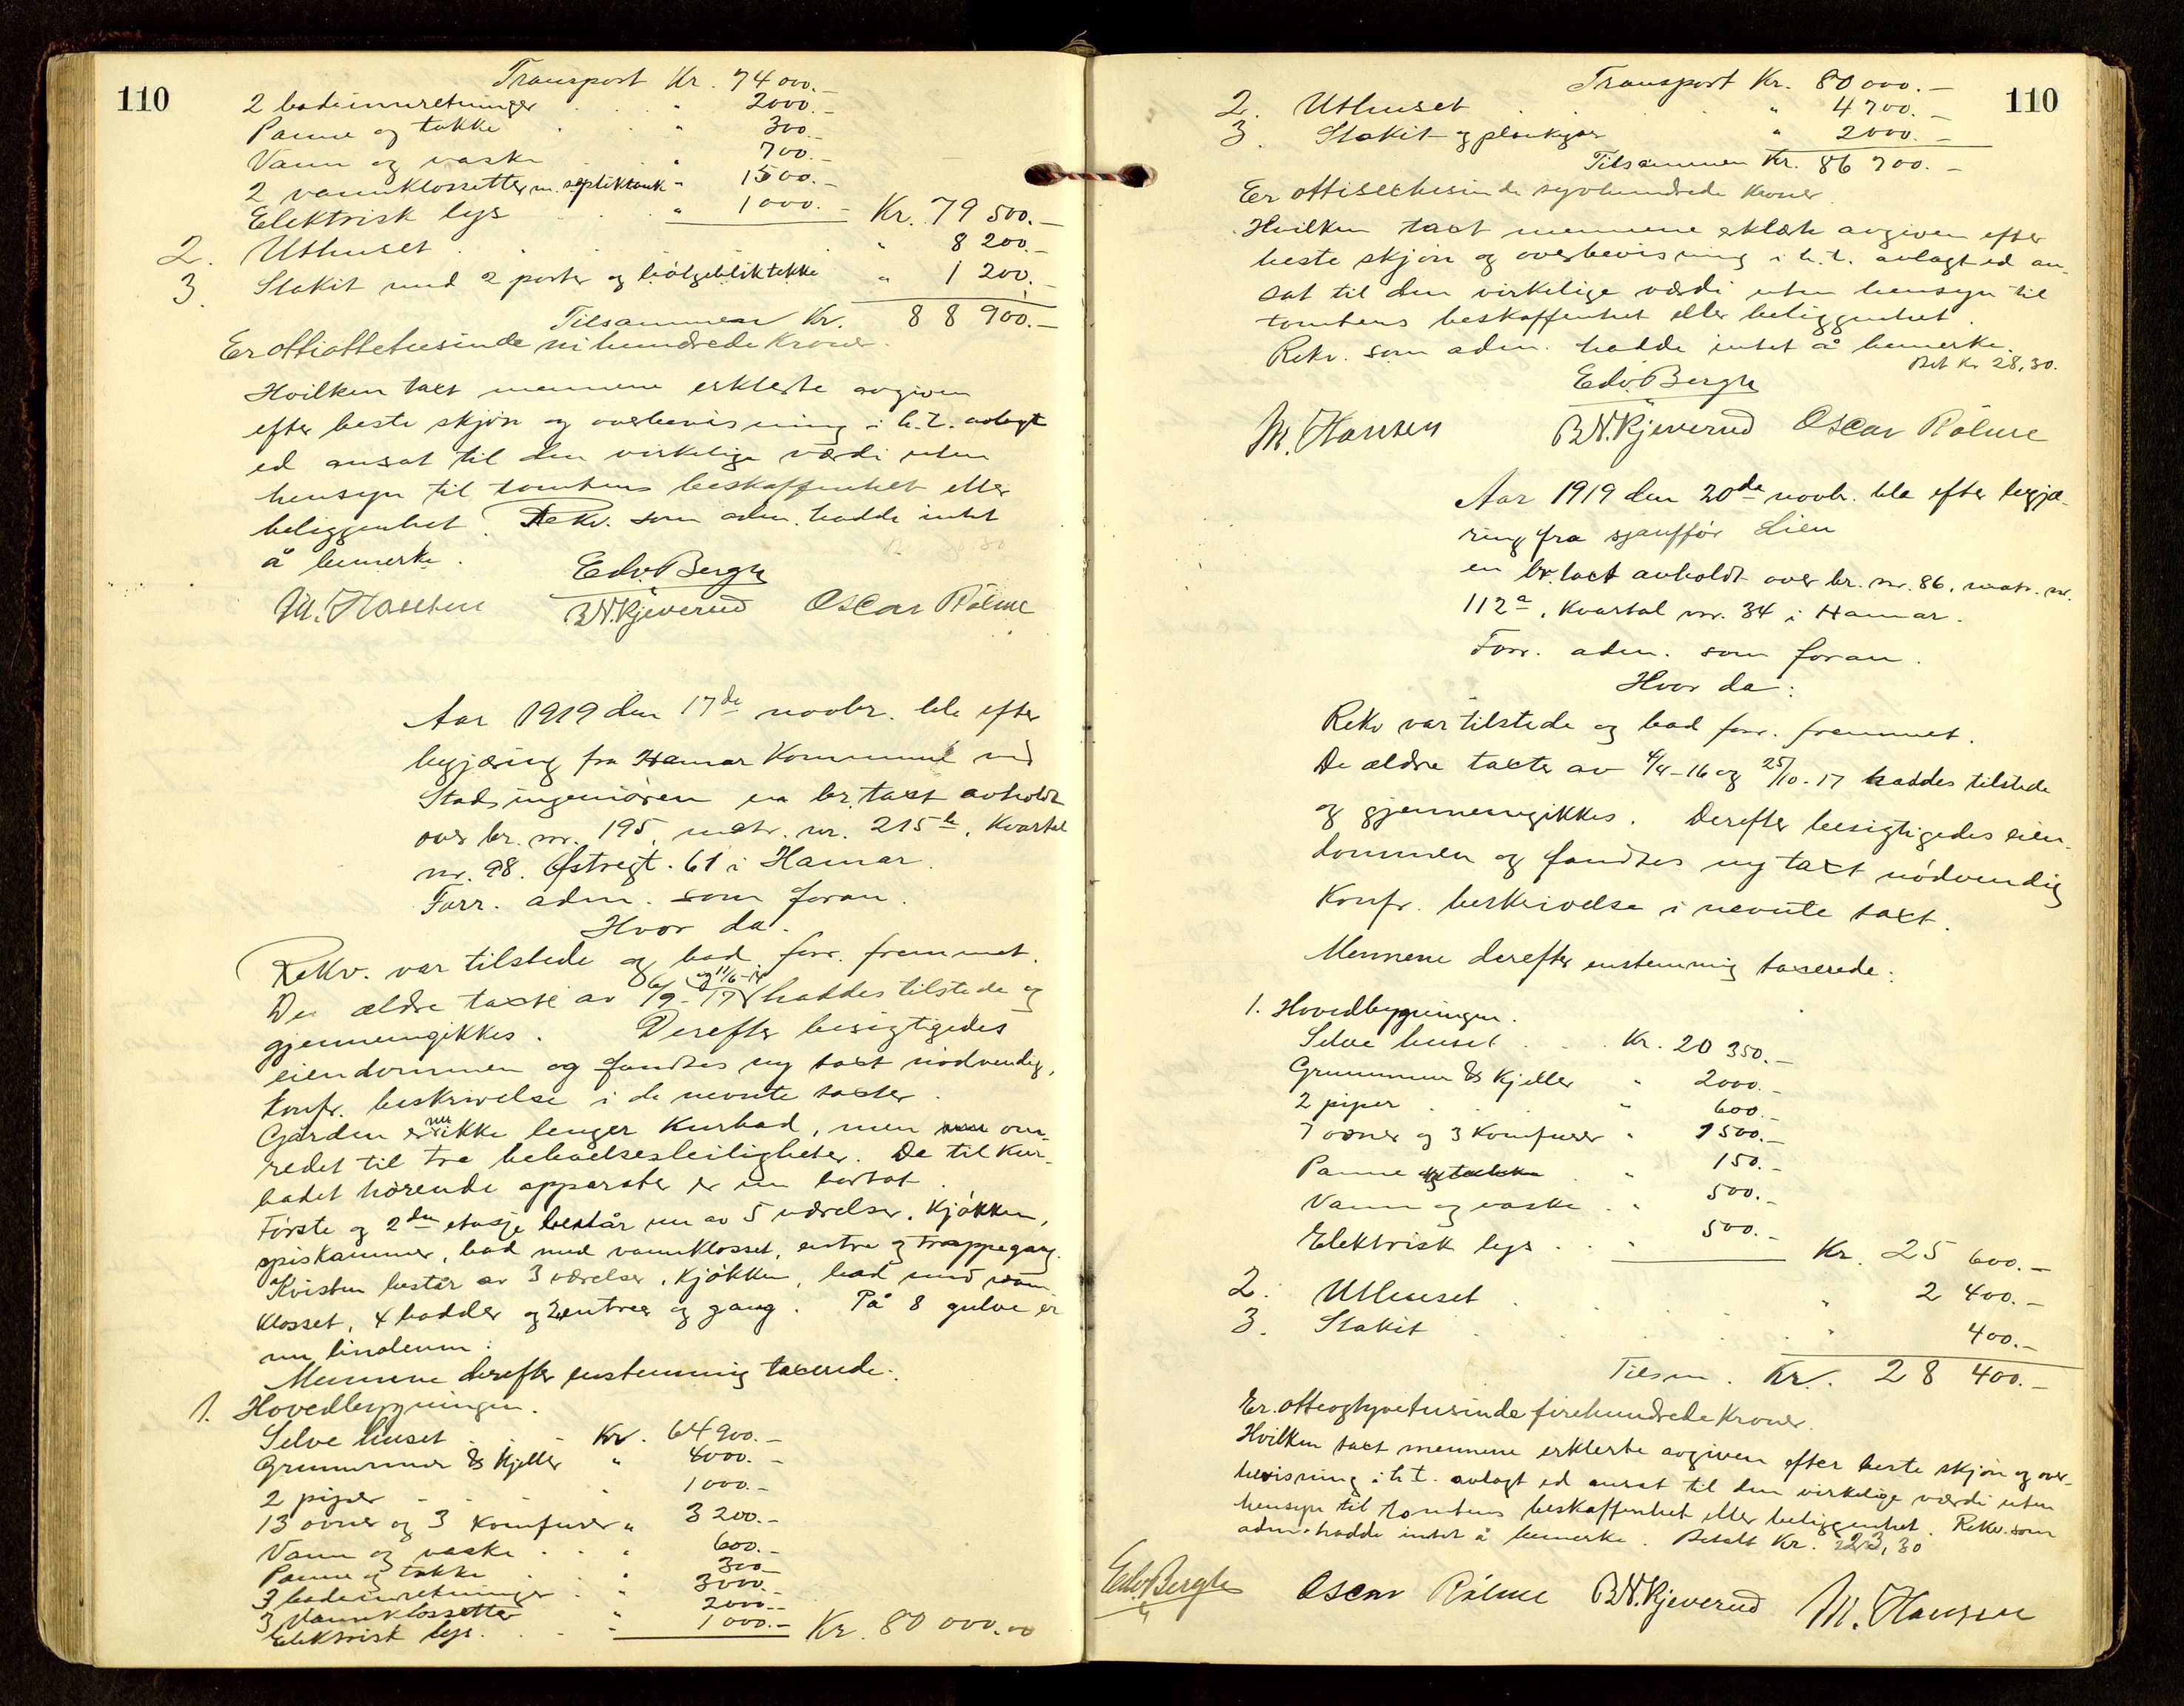 110
Transport Kr. 74 000.-
2 badeinnretninger . . . " 2000.-
Panne og takke . . " 300.-
Vann og vaske . . " 700.-
2 vannklossetter m. septiktank " 1500.-
Elektrisk lys . . . " 1000.- Kr. 79 500.-
2. Uthuset . . . . " 8 200.-
3. Stakit med 2 porter og bølgebliktekke " 1 200.-
Tilsammen Kr. 88 900.-
Er ottiottetusinde nihundrede kroner.
Hvilken taxt mennene erklerte avgiven
efter beste skjøn og overbevisning i h.t. avlagt
ed ansat til den virkelige værdi uten
hensyn til tomtens beskaffenhet eller
beliggenhet. Rekv. som adm. hadde intet
å bemerke.
Edv. Bergh
M. Hansen B.N. Kjeverud Oscar Rølme
Aar 1919 den 17de novbr. ble efter
begjæring fra Hamar Kommune ved
Stadsingeniøren en br. taxt avholdt
over br. nr. 195, matr. nr. 215b, Kvartal
nr. 98. Østregt. 61 i Hamar.
Forr. adm. som foran.
Hvor da:
Rekv. var tilstede og bad forr. fremmet.
De ældre taxte av 6/9-17 og 11/6-14 haddes tilstede og
gjennemgikkes. Derefter besigtigedes
eiendommen og fandtes ny taxt nødvendig,
konfr. beskrivelse i de nevnte taxter.
Gården er nu ikke lenger Kurbad, men om-
redet til tre beboelsesleiligheter. De til Kur-
badet hørende apparater er nu bortat.
Første og 2den etasje består nu av 5 værelser, Kjøkken,
spiskammer, bad med vannklosset, entre og trappegang.
Kvisten består av 3 værelser, Kjøkken, bad med vann-
klosset, 4 bodder og 2 entreer og gang. På 8 gulve er
nu linoleum.
Mennene derefter enstemmig taxerede:
1. Hovedbygningen.
Selve huset . . . Kr. 64 900.-
Grunnmur & Kjeller " 4000.-
2 piper . . . " 1000.-
13 ovner og 3 Komfurer " 3 200.-
Vann og vaske . . " 600.-
Panne og takke . . " 300.-
3 badeinnretninger . . " 3000.-
3 Vannklossetter " 2000.-
Elektrisk lys. . . . " 1000.- Kr. 80 000.00
110
Transport Kr. 80 000.-
2. Uthuset . . . " 4700.-
3. Stakit og plankgjær " 2000.-
Tilsammen Kr. 86 700.-
Er ottisekstusinde syvhundrede kroner.
Hvilken taxt mennene erklærte avgiven efter
beste skjøn og overbevisning i h.t. avlagt ed an-
sat til den virkelige værdi uten hensyn til
tomtens beskaffenhet eller beliggenhet.
Rekv. som adm. hadde intet å bemerke.
Bet Kr 28,30.
Edv. Bergh
M. Hansen B.N. Kjeverud Oscar Rølme
Aar 1919 den 20de novbr. ble efter begjæ-
ring fra sjauffør Lien
en br. taxt avholdt over br. nr. 86, matr. nr.
112a, Kvartal nr. 34 i Hamar.
Forr. adm. som foran.
Hvor da:
Rekv var tilstede og bad forr. fremmet.
De ældre taxter av 4/4-16 og 25/10-17 haddes tilstede
og gjennemgikkes. Derefter besigtigedes eien-
dommen og fandtes ny taxt nødvendig
Konfr. beskrivelse i nevnte taxt.
Mennene derefter enstemmig taxerede:
1. Hovedbygningen.
Selve huset . . . Kr. 20 350.-
Grunnmur & Kjeller " 2000.-
2 piper . . . " 600.-
7 ovner og 3 Komfurer " 1500.-
Panne og takke . " 150.-
Vann og vaske . " 500.-
Elektrisk lys . . " 500.- Kr. 25 600.-
2. Uthuset . . . . " 2 400.-
3. Stakit . . . . " 400.-
Tilsm. Kr. 28 400.-
Er. otteogtyvetusinde firehundrede Kroner.
Hvilken taxt mennene erklerte avgiven efter beste skjøn og over-
bevisning i h.t. avlagt ed ansat til den virkelige værdi uten
hensyn til tomtens beskaffenhet eller beliggenhet. Rekv. som
adm. hadde intet å bemerke. Betalt Kr. 23,30
Edv. Bergh Oscar Rølme B.N. Kjeverud M. Hansen